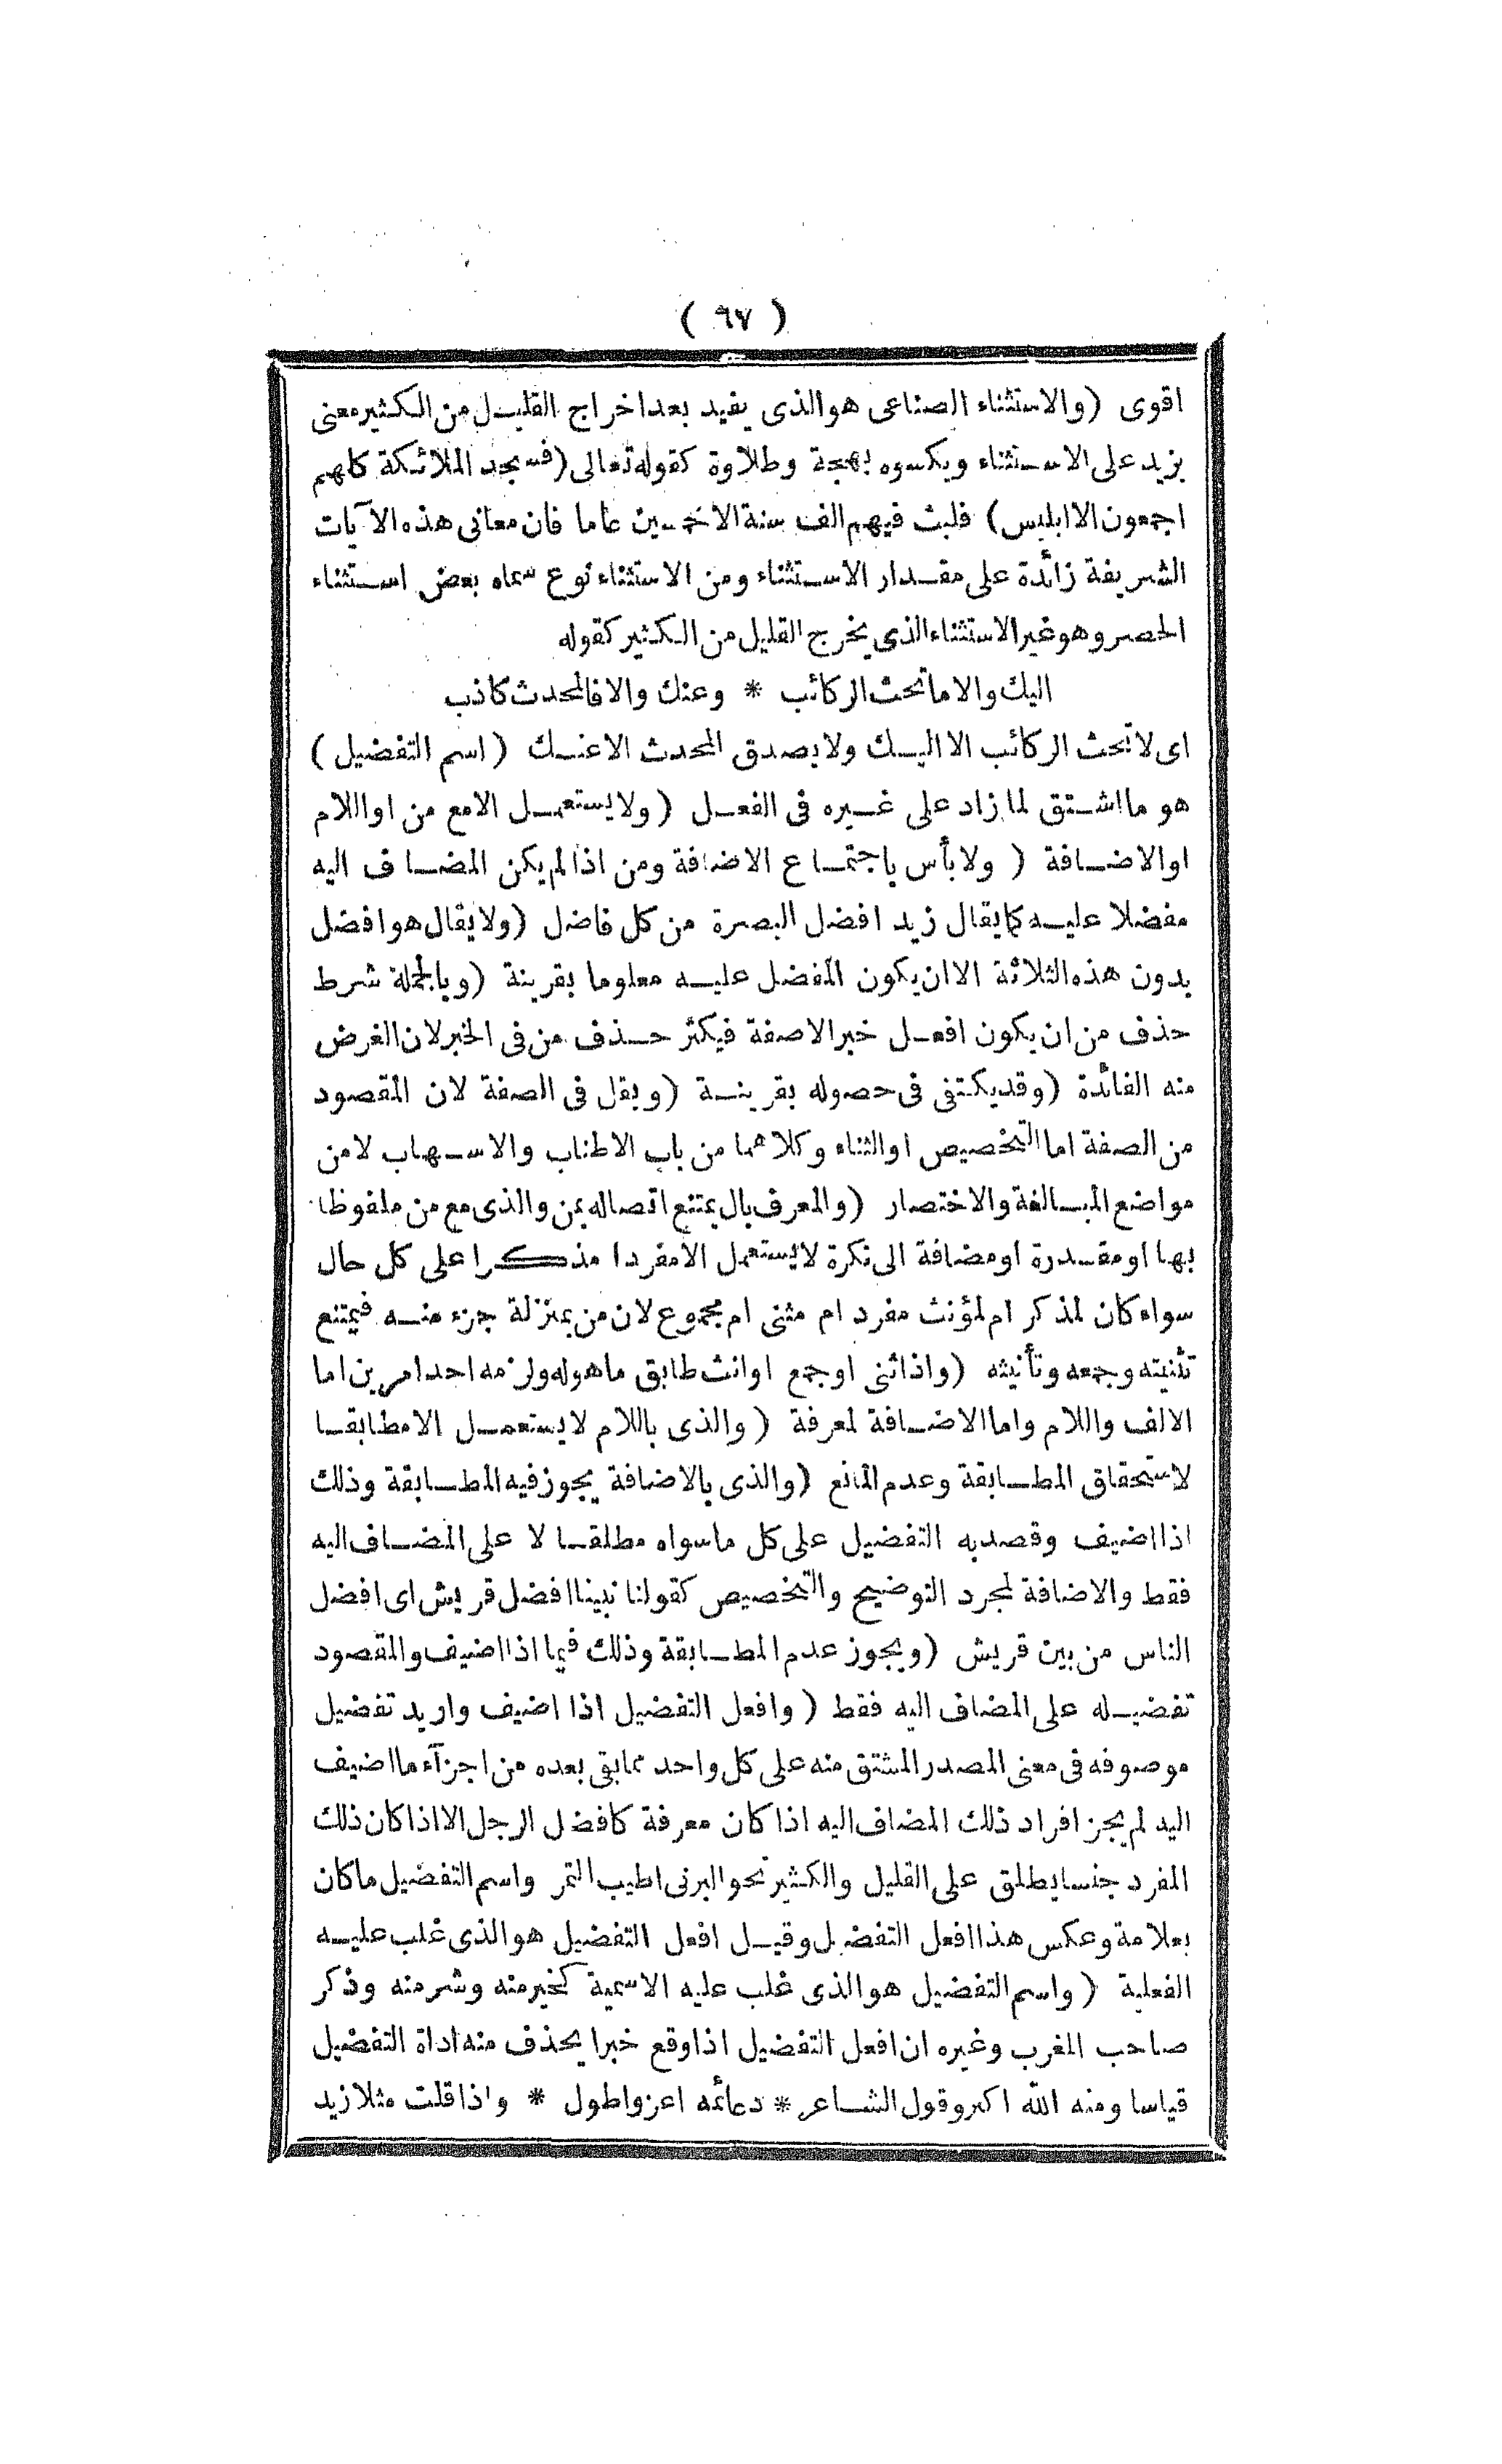 ( ٦٧ )
اقوى (والاستثناء الصناعى هو الذى يفيد بعد اخراج القليل من الكثير معنى
يزيد على الاستثناء ويكسوه بهجة وطلاوة كقوله تعالى (فسجد الملائكة كلهم
اجمعون الا ابليس) فلبث فيهم الف سنة الا خمسين عاما فان معانى هذه الآيات
الشريفة زائدة على مقدار الاستثناء ومن الاستثناء نوع سماه بعض استثناء
الحصر وهو غير الاستثناء الذى يخرج القليل من الكثير كقوله
اليك والا ما تحث الركائب * وعنك والا فالمحدث كاذب
اى لا تحث الركائب الا اليك ولا يصدق المحدث الا عنك (اسم التفضيل)
هو ما اشتق لما زاد على غيره فى الفعل (ولا يستعمل الا مع من او اللام
او الاضافة (ولا بأس باجتماع الاضافة ومن اذا لم يكن المضاف اليه
مفضلا عليه كما يقال زيد افضل البصرة من كل فاضل (ولا يقال هو افضل
بدون هذه الثلاثة الا ان يكون المفضل عليه معلوما بقرينة (وبالجملة شرط
حذف من ان يكون افعل خبرا لا صفة فيكثر حذف من فى الخبر لان الغرض
منه الفائدة (وقد يكتفى فى حصوله بقرينة (ويقل فى الصفة لان المقصود
من الصفة اما التخصيص او الثناء وكلاهما من باب الاطناب والاسهاب لا من
مواضع المبالغة والاختصار (والمعرف بال يمتنع اتصاله بمن والذى مع من ملفوظا
بها او مقدرة او مضافة الى نكرة لا يستعمل الا مفردا مذكرا على كل حال
سواء كان لمذكر ام لمؤنث مفرد ام مثنى ام مجموع لان من بمنزلة جزء منه فيمتنع
تثنيته وجمعه وتأنيثه (واذا ثنى او جمع او انث طابق ما هو له ولزمه احد امرين اما
الالف واللام واما الاضافة لمعرفة (والذى باللام لا يستعمل الا مطابقا
لاستحقاق المطابقة وعدم المانع (والذى بالاضافة يجوز فيه المطابقة وذلك
اذا اضيف وقصد به التفضيل على كل ما سواه مطلقا لا على المضاف اليه
فقط والاضافة لمجرد التوضيح والتخصيص كقولنا نبينا افضل قريش اى افضل
الناس من بين قريش (ويجوز عدم المطابقة وذلك فيما اذا اضيف والمقصود
تفضيله على المضاف اليه فقط (وافعل التفضيل اذا اضيف واريد تفضيل
موصوفه فى معنى المصدر المشتق منه على كل واحد مما بقى بعده من اجزآء ما اضيف
اليه لم يجز افراد ذلك المضاف اليه اذا كان معرفة كافضل الرجل الا اذا كان ذلك
المفرد جنسا يطلق على القليل والكثير نحو البرنى اطيب التمر واسم التفضيل ما كان
بعلامة وعكس هذا افعل التفضيل وقيل افعل التفضيل هو الذى غلب عليه
الفعلية (واسم التفضيل هو الذى غلب عليه الاسمية كخير منه وشر منه وذكر
صاحب المغرب وغيره ان افعل التفضيل اذا وقع خبرا يحذف منه اداة التفضيل
قياسا ومنه الله اكبر وقول الشاعر * دعائمه اعز واطول * واذا قلت مثلا زيد